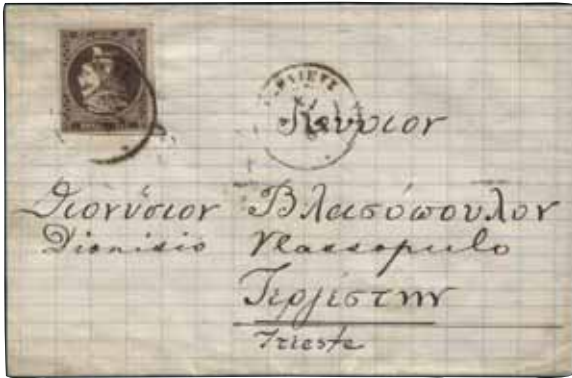 Κύριον
Διονύσιον Βλασόπουλον
Dionisio Vlassopulo
Τεργέστην
Trieste